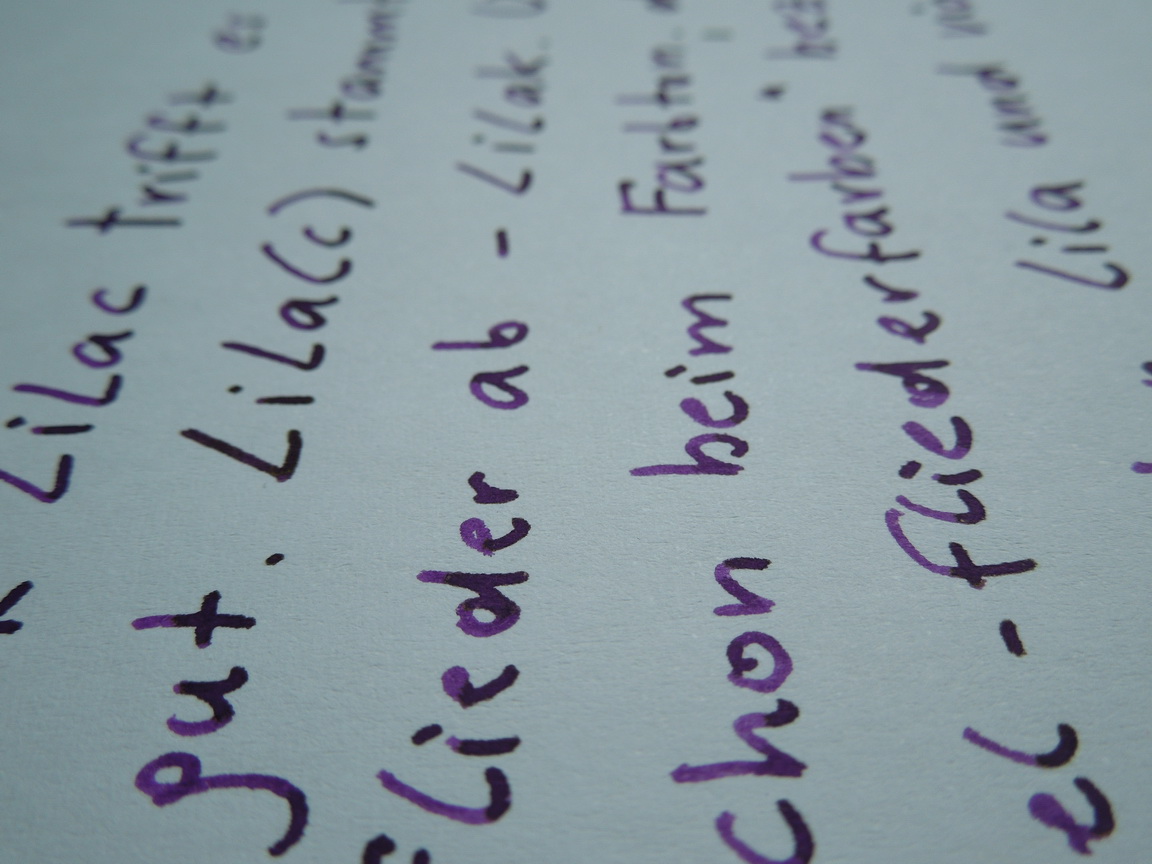 Lilac trifft es
gut. Lila(c) stammt
Flieder ab - Lilak.
chon beim Farbton
el - fliederfarben
Lila und